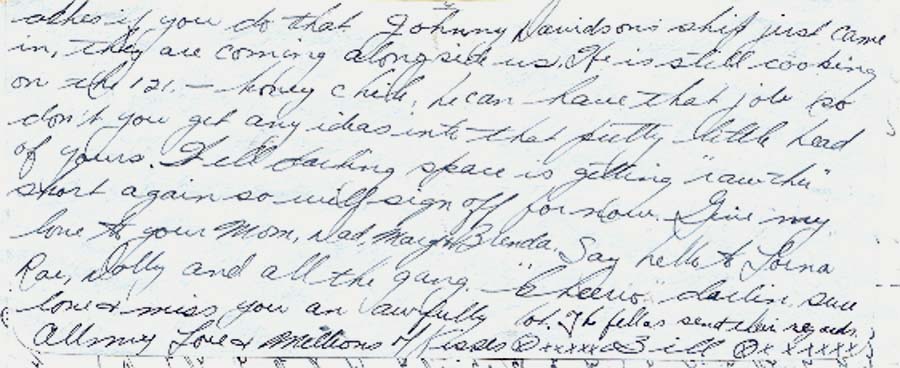 ashes if you do that Johnny Davidson's ship just came
in, they are coming alongside us. He is still cooking
on the 121. — honey chile, he can have that job (so
don't you get any ideas into that pretty little head
of yours. Well darling space is getting "rawther"
short again so will sign off for now. Give my
love to your Mom, Dad, Marg & Brenda. Say hello to Lorna
Rae, Dolly and all the gang. "Cheerio" darlin, sure
love & miss you an awfully lot. The fellas sent their regards.
All my Love & Millions of Kisses xxxxxx Bill xxxxxx